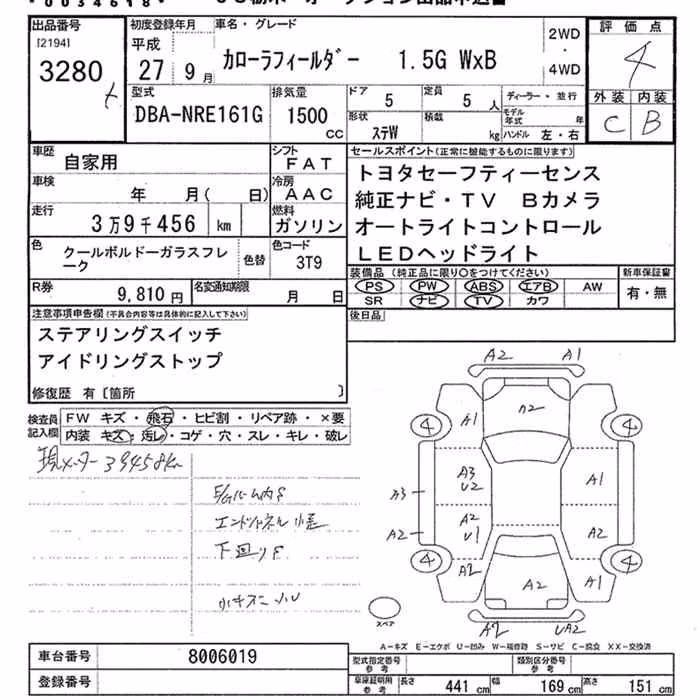 出品番号
[2194]
3280
初度登録年月
平成
27 9月
車名・グレード
カローラフィールダー 1.5G WxB
2WD
・
4WD
評価点
4
外装 内装
C B
型式
DBA-NRE161G
排気量
1500
CC
ドア
5
定員
5 人
形状
ステW
積載
kg
ディーラー・並行
モデル年式 年
ハンドル 左・右
車歴
自家用
シフト
FAT
車検
年 月( 日)
冷房
AAC
走行
3万9千456 km
燃料
ガソリン
色
クールボルドーガラスフレ
ーク
色替
色コード
3T9
R券
9,810 円
名変通知期限
月 日
セールスポイント(正常に機能するものに限ります)
トヨタセーフティーセンス
純正ナビ・TV Bカメラ
オートライトコントロール
LEDヘッドライト
装備品(純正品に限り○をつけてください)
PS PW ABS エアB AW
SR ナビ TV カワ
新車保証書
有・無
後日品
注意事項申告欄(不具合内容等は具体的に記入して下さい)
ステアリングスイッチ
アイドリングストップ
修復歴 有〔箇所 〕
検査員
記入欄
FW キズ・飛石・ヒビ割・リペア跡・×要
内装 キズ・汚レ・コゲ・穴・スレ・キレ・破レ
現メーター 39458km
下回りF
A2 A1
4 A1 A2 4
A3
U2 A1
A3
A2
U1 A2
A2
4 A2 A2 A1 4
スペア
A2 UA2
A-キズ E-エクボ U-凹み W-補修跡 S-サビ C-腐食 XX-交換済
車台番号
8006019
登録番号
型式指定番号
参考
類別区分番号
参考
車庫証明用
参考
長さ 441 cm 幅 169 cm 高さ 151 cm